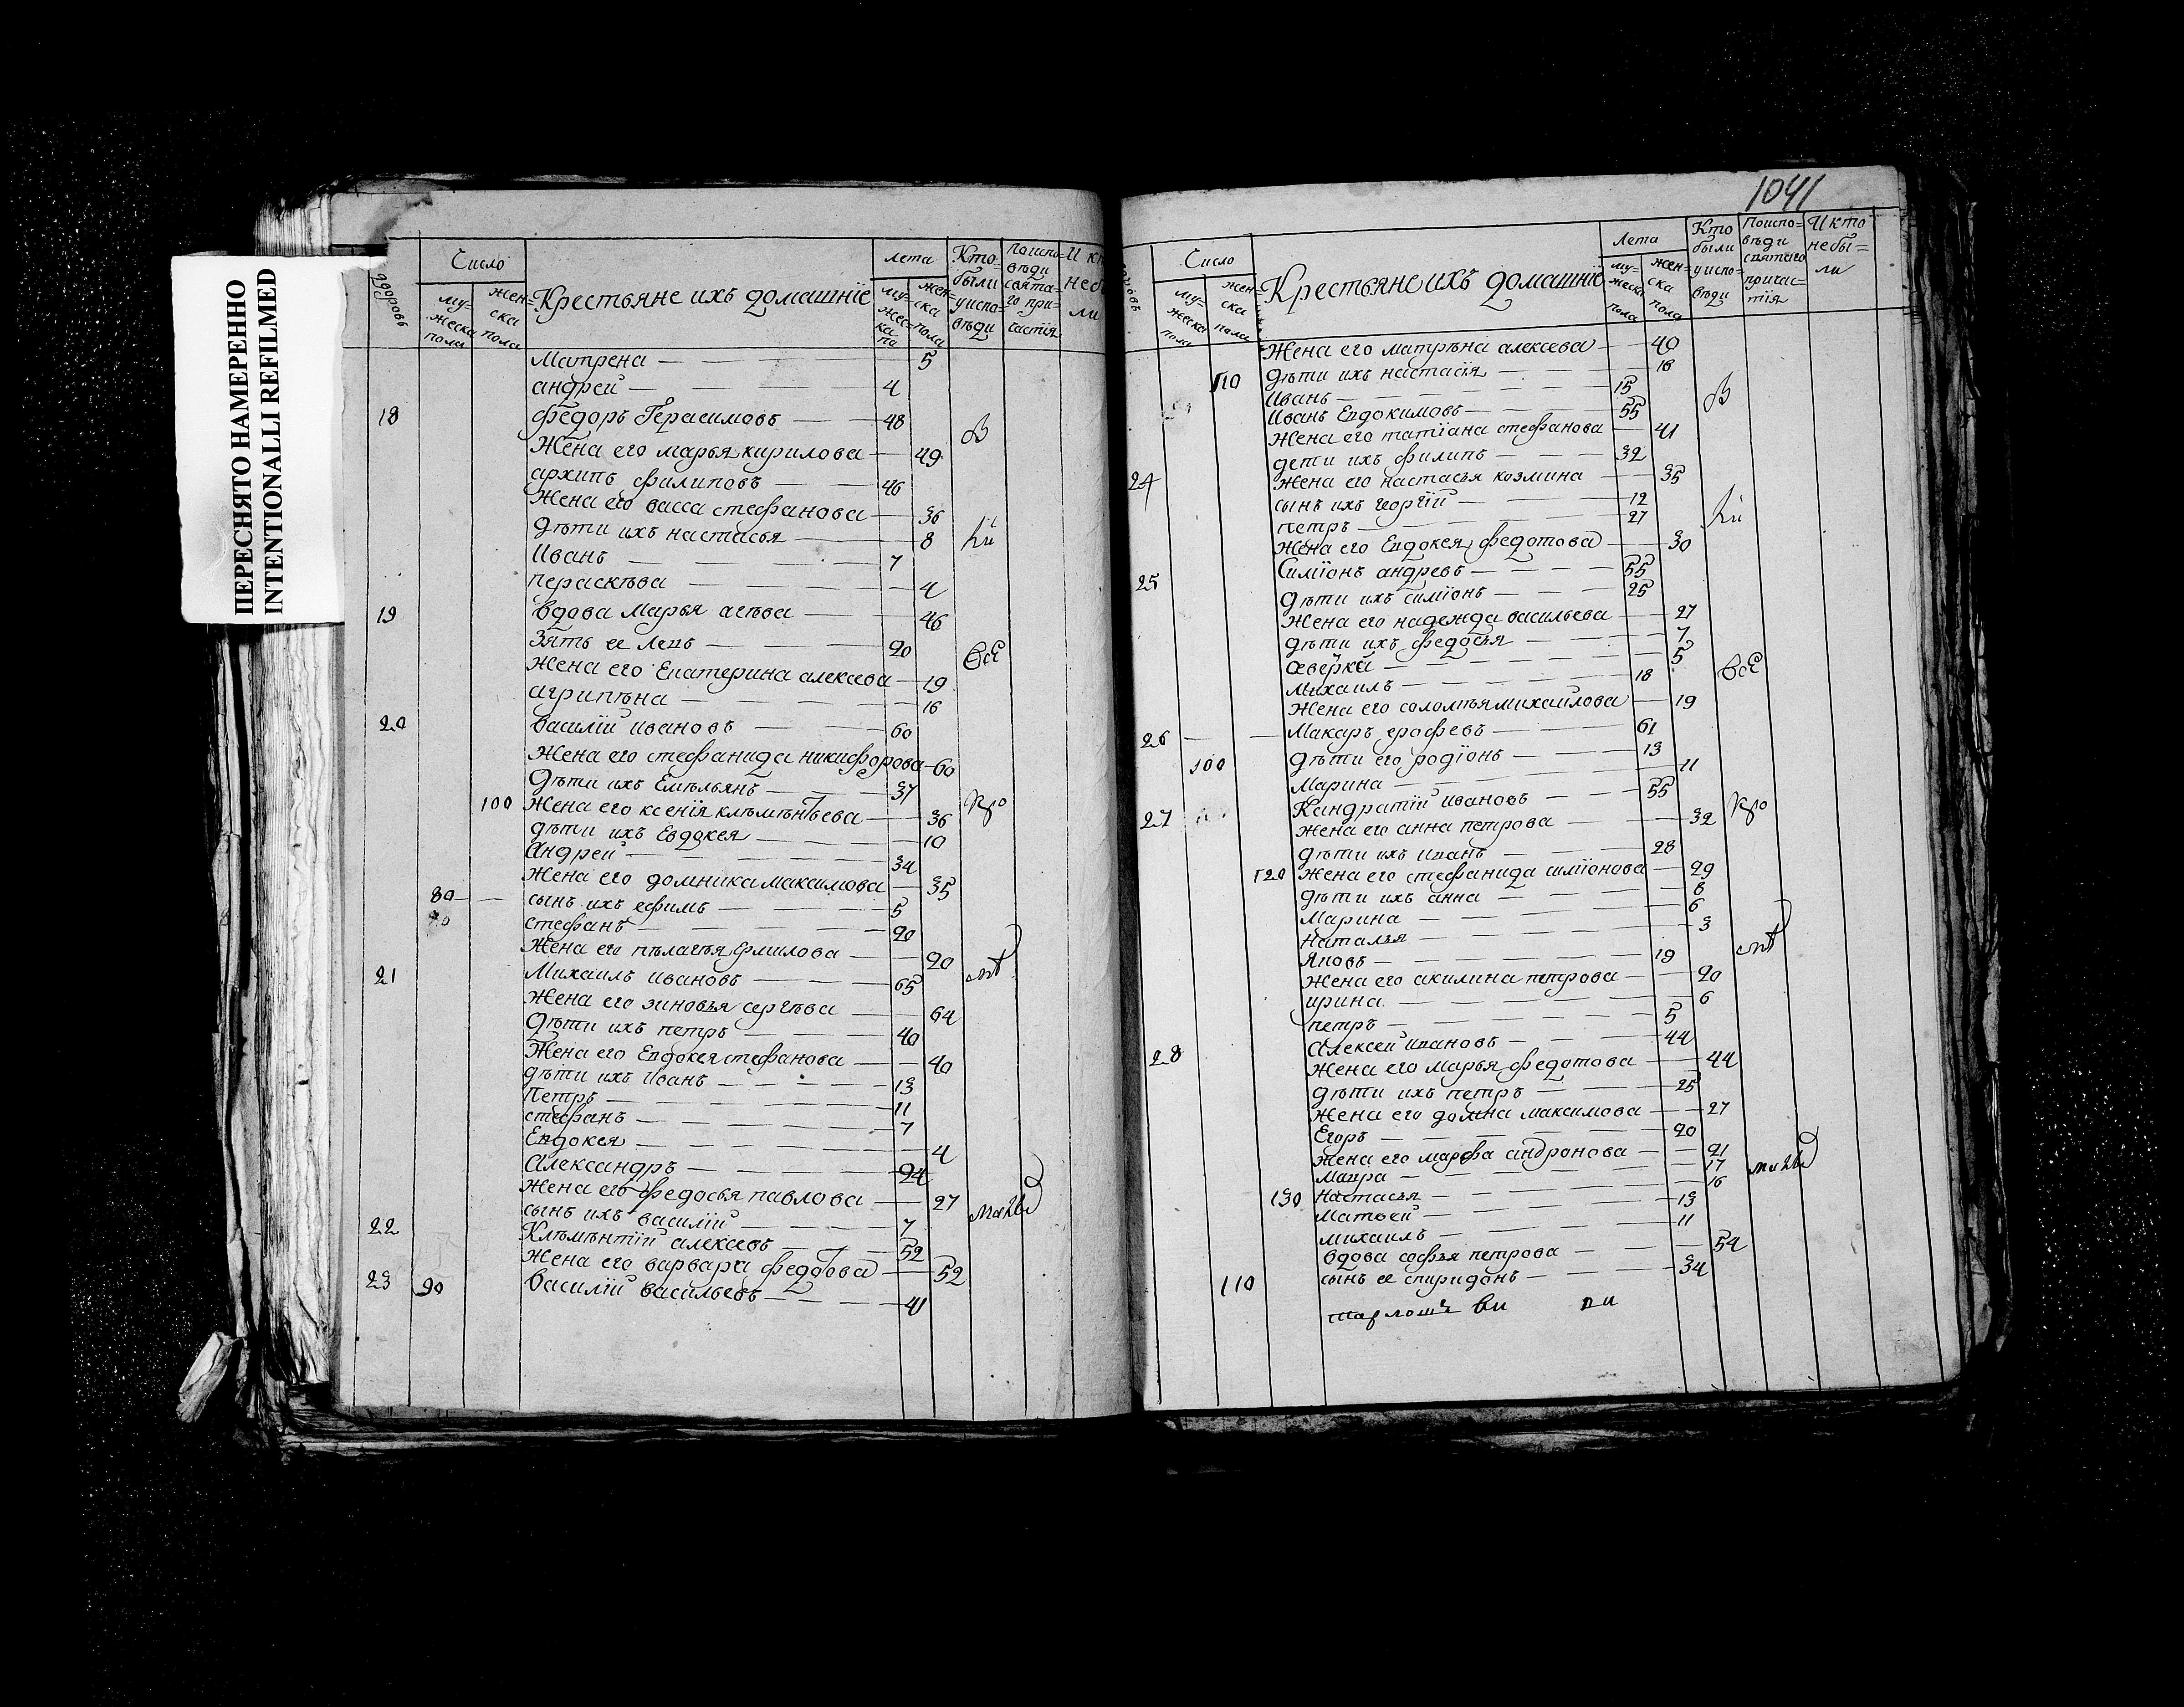 ПЕРЕСНЯТО НАМЕРЕННО
INTENTIONALLI REFILMED
дворовъ
Число
мужеска пола
женска пола
Крестьяне ихъ домашнїе
Лета
мужеска по
женска пола
Кто были у исповѣди
По исповѣди святаго причастїя
И кт небы ли
Матрена — 5
андрей — 4
18 федоръ Герасимовъ — 48
Жена его марья кирилова — 49
архипъ филиповъ — 46
Жена его васса стефанова — 36
дѣти ихъ настасья — 8
Иванъ — 7
пераскѣва — 4
19 вдова Марья агѣва — 46
Зять ее Левъ — 20
Жена его Екатерина алексева — 19
агрипѣна — 16
20 василїй ивановъ — 60
Жена его стефанида никифорова — 60
Дѣти ихъ Емѣльянъ — 37
100 Жена его ксенїя клѣмѣнтьева — 36
дѣти ихъ Евдокея — 10
Андрей — 34
Жена его домника максимова — 35
80 — сынъ ихъ ефимъ — 5
стефанъ — 20
Жена его пѣлагья ермилова — 20
21 Михаилъ ивановъ — 65
Жена его зиновья сергѣва — 64
Дѣти ихъ петръ — 40
Жена его Евдокея стефанова — 40
дѣти ихъ Иванъ — 13
Петръ — 11
стефанъ — 7
Евдокея — 4
Александръ — 24
Жена его федосья павлова — 27
сынъ ихъ василїй — 7
22 Клѣмѣнтїй алексевъ — 52
Жена его варвара федо̄ова — 52
23 90 Василїй васильевъ — 41
В
ки
всѣ
кро
1041
Число
мужеска пола
женска пола
Крестьяне ихъ домашнїе
Лета
мужеска пола
женска пола
Кто были у исповѣди
По исповѣди святаго причастїя
И кто небыли
Жена его матрѣна алексева — 40
110 дѣти ихъ настасїя — 16
Иванъ — 15
Иванъ Евдокимовъ — 55
Жена его татїана стефанова — 41
дети ихъ филипъ — 32
24 Жена его настасья козмина — 35
сынъ ихъ георгїй — 12
петръ — 27
Жена его Евдокея федотова — 30
25 Симїонъ андревъ — 55
Дѣти ихъ симїонъ — 25
Жена его надежда васильева — 27
дѣти ихъ федосья — 7
— 5
Михаилъ — 18
Жена его соломѣя михаилова — 19
26 — Макаръ ерофевъ — 61
100 дѣти его родїонъ — 13
Марина — 11
27 Кандратїй ивановъ — 55
Жена его анна петрова — 32
дѣти ихъ иванъ — 28
120 Жена его стефанида симїонова — 29
дѣти ихъ анна — 8
Марина — 6
Наталья — 3
Яковъ — 19
Жена его акилина петрова — 20
ирина — 6
петръ — 5
28 Алексей ивановъ — 44
Жена его марья федотова — 44
дѣти ихъ петръ — 25
Жена его домна максимова — 27
Егоръ — 20
Жена его марфа андронова — 21
Мавра — 17
130 Настасья — 16
Матвей — 13
михаилъ — 11
вдова софья петрова — 54
110 сынъ ее спиридонъ — 34
В
ки
всѣ
кро